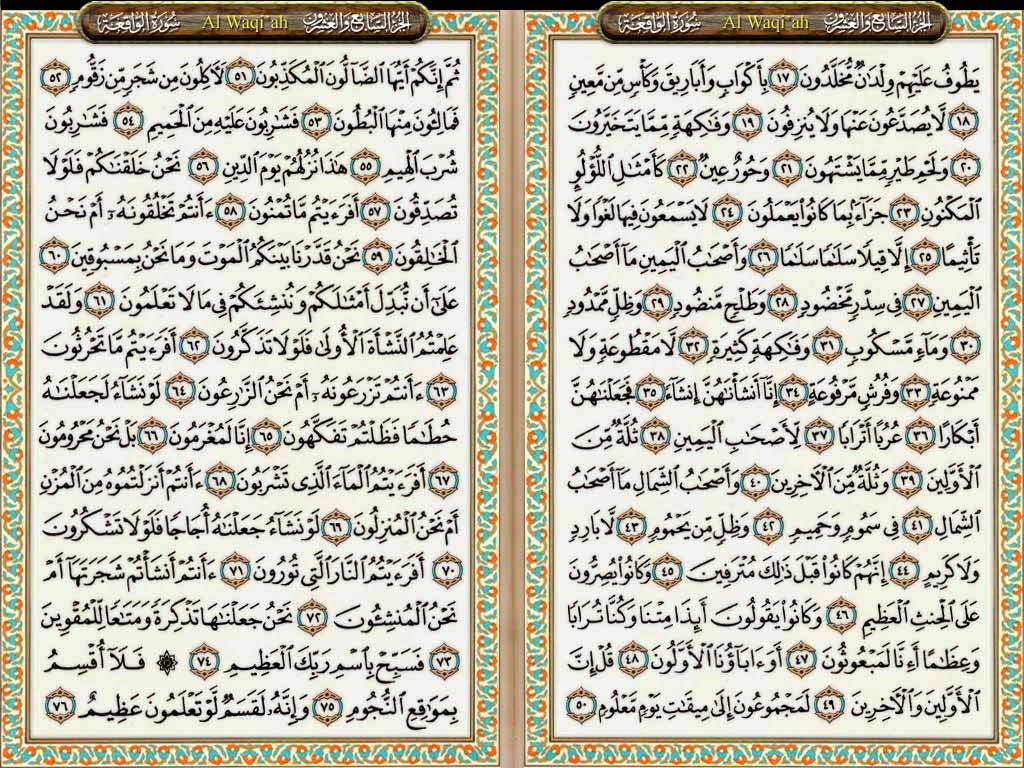 الجزء السابع والعشرون Al Waqi ah سورة الواقعة
يَطُوفُ عَلَيْهِمْ وِلْدَٰنٌ مُّخَلَّدُونَ ١٧ بِأَكْوَابٍ وَأَبَارِيقَ وَكَأْسٍ مِّن مَّعِينٍ
١٨ لَّا يُصَدَّعُونَ عَنْهَا وَلَا يُنزِفُونَ ١٩ وَفَٰكِهَةٍ مِّمَّا يَتَخَيَّرُونَ
٢٠ وَلَحْمِ طَيْرٍ مِّمَّا يَشْتَهُونَ ٢١ وَحُورٌ عِينٌ ٢٢ كَأَمْثَٰلِ اللُّؤْلُؤِ
الْمَكْنُونِ ٢٣ جَزَآءً بِمَا كَانُوا۟ يَعْمَلُونَ ٢٤ لَا يَسْمَعُونَ فِيهَا لَغْوًا وَلَا
تَأْثِيمًا ٢٥ إِلَّا قِيلًا سَلَٰمًا سَلَٰمًا ٢٦ وَأَصْحَٰبُ الْيَمِينِ مَآ أَصْحَٰبُ
الْيَمِينِ ٢٧ فِى سِدْرٍ مَّخْضُودٍ ٢٨ وَطَلْحٍ مَّنضُودٍ ٢٩ وَظِلٍّ مَّمْدُودٍ
٣٠ وَمَآءٍ مَّسْكُوبٍ ٣١ وَفَٰكِهَةٍ كَثِيرَةٍ ٣٢ لَّا مَقْطُوعَةٍ وَلَا
مَمْنُوعَةٍ ٣٣ وَفُرُشٍ مَّرْفُوعَةٍ ٣٤ إِنَّآ أَنشَأْنَٰهُنَّ إِنشَآءً ٣٥ فَجَعَلْنَٰهُنَّ
أَبْكَارًا ٣٦ عُرُبًا أَتْرَابًا ٣٧ لِّأَصْحَٰبِ الْيَمِينِ ٣٨ ثُلَّةٌ مِّنَ
الْأَوَّلِينَ ٣٩ وَثُلَّةٌ مِّنَ الْآخِرِينَ ٤٠ وَأَصْحَٰبُ الشِّمَالِ مَآ أَصْحَٰبُ
الشِّمَالِ ٤١ فِى سَمُومٍ وَحَمِيمٍ ٤٢ وَظِلٍّ مِّن يَحْمُومٍ ٤٣ لَّا بَارِدٍ
وَلَا كَرِيمٍ ٤٤ إِنَّهُمْ كَانُوا۟ قَبْلَ ذَٰلِكَ مُتْرَفِينَ ٤٥ وَكَانُوا۟ يُصِرُّونَ
عَلَى الْحِنثِ الْعَظِيمِ ٤٦ وَكَانُوا۟ يَقُولُونَ أَئِذَا مِتْنَا وَكُنَّا تُرَابًا
وَعِظَٰمًا أَءِنَّا لَمَبْعُوثُونَ ٤٧ أَوَءَابَآؤُنَا الْأَوَّلُونَ ٤٨ قُلْ إِنَّ
الْأَوَّلِينَ وَالْآخِرِينَ ٤٩ لَمَجْمُوعُونَ إِلَىٰ مِيقَٰتِ يَوْمٍ مَّعْلُومٍ ٥٠
الجزء السابع والعشرون Al Waqi ah سورة الواقعة
ثُمَّ إِنَّكُمْ أَيُّهَا الضَّآلُّونَ الْمُكَذِّبُونَ ٥١ لَآكِلُونَ مِن شَجَرٍ مِّن زَقُّومٍ ٥٢
فَمَالِـُٔونَ مِنْهَا الْبُطُونَ ٥٣ فَشَٰرِبُونَ عَلَيْهِ مِنَ الْحَمِيمِ ٥٤ فَشَٰرِبُونَ
شُرْبَ الْهِيمِ ٥٥ هَٰذَا نُزُلُهُمْ يَوْمَ الدِّينِ ٥٦ نَحْنُ خَلَقْنَٰكُمْ فَلَوْلَا
تُصَدِّقُونَ ٥٧ أَفَرَءَيْتُم مَّا تُمْنُونَ ٥٨ ءَأَنتُمْ تَخْلُقُونَهُۥٓ أَمْ نَحْنُ
الْخَٰلِقُونَ ٥٩ نَحْنُ قَدَّرْنَا بَيْنَكُمُ الْمَوْتَ وَمَا نَحْنُ بِمَسْبُوقِينَ ٦٠
عَلَىٰٓ أَن نُّبَدِّلَ أَمْثَٰلَكُمْ وَنُنشِئَكُمْ فِى مَا لَا تَعْلَمُونَ ٦١ وَلَقَدْ
عَلِمْتُمُ النَّشْأَةَ الْأُولَىٰ فَلَوْلَا تَذَكَّرُونَ ٦٢ أَفَرَءَيْتُم مَّا تَحْرُثُونَ
٦٣ ءَأَنتُمْ تَزْرَعُونَهُۥٓ أَمْ نَحْنُ الزَّٰرِعُونَ ٦٤ لَوْ نَشَآءُ لَجَعَلْنَٰهُ
حُطَٰمًا فَظَلْتُمْ تَفَكَّهُونَ ٦٥ إِنَّا لَمُغْرَمُونَ ٦٦ بَلْ نَحْنُ مَحْرُومُونَ
٦٧ أَفَرَءَيْتُمُ الْمَآءَ الَّذِى تَشْرَبُونَ ٦٨ ءَأَنتُمْ أَنزَلْتُمُوهُ مِنَ الْمُزْنِ
أَمْ نَحْنُ الْمُنزِلُونَ ٦٩ لَوْ نَشَآءُ جَعَلْنَٰهُ أُجَاجًا فَلَوْلَا تَشْكُرُونَ
٧٠ أَفَرَءَيْتُمُ النَّارَ الَّتِى تُورُونَ ٧١ ءَأَنتُمْ أَنشَأْتُمْ شَجَرَتَهَآ أَمْ
نَحْنُ الْمُنشِـُٔونَ ٧٢ نَحْنُ جَعَلْنَٰهَا تَذْكِرَةً وَمَتَٰعًا لِّلْمُقْوِينَ
٧٣ فَسَبِّحْ بِاسْمِ رَبِّكَ الْعَظِيمِ ٧٤ ۞ فَلَآ أُقْسِمُ
بِمَوَٰقِعِ النُّجُومِ ٧٥ وَإِنَّهُۥ لَقَسَمٌ لَّوْ تَعْلَمُونَ عَظِيمٌ ٧٦